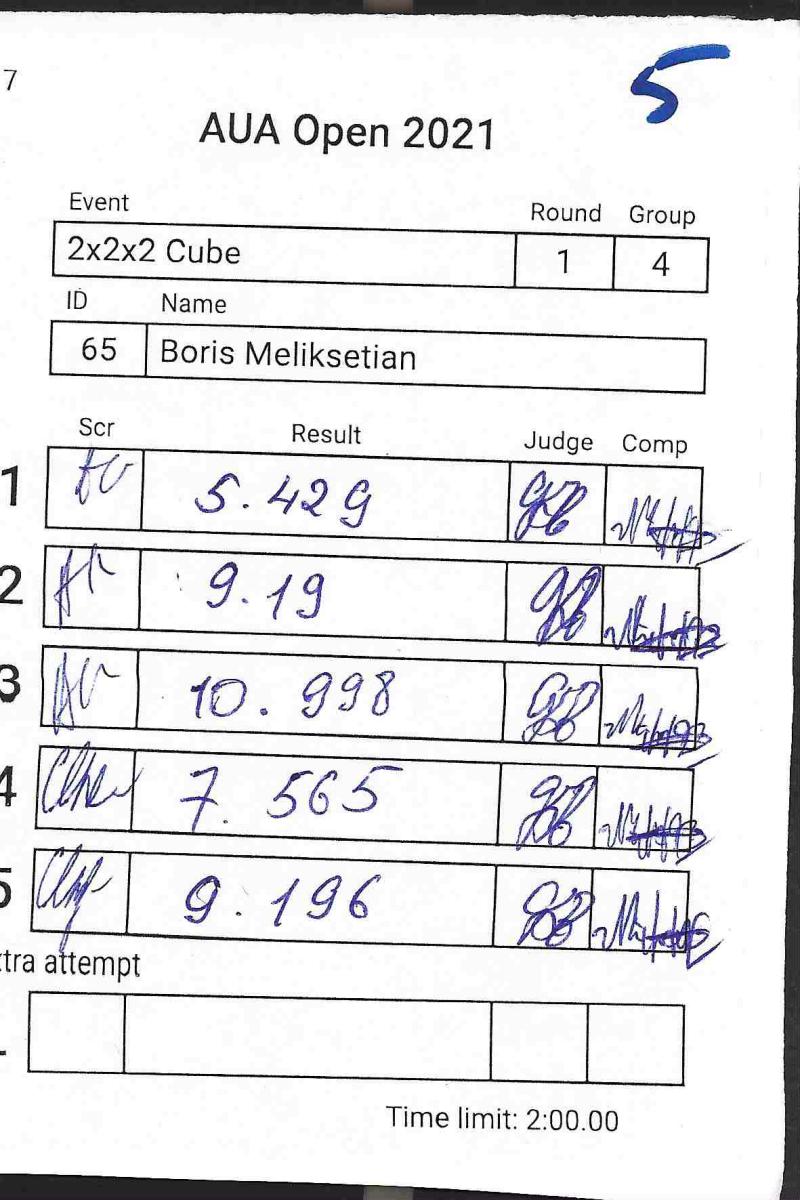 7
5
AUA Open 2021
Event Round Group
2x2x2 Cube 1 4
ID Name
65 Boris Meliksetian
Scr Result Judge Comp
1 5.429
2 9.19
3 10.998
4 7.565
5 9.196
xtra attempt
Time limit: 2:00.00